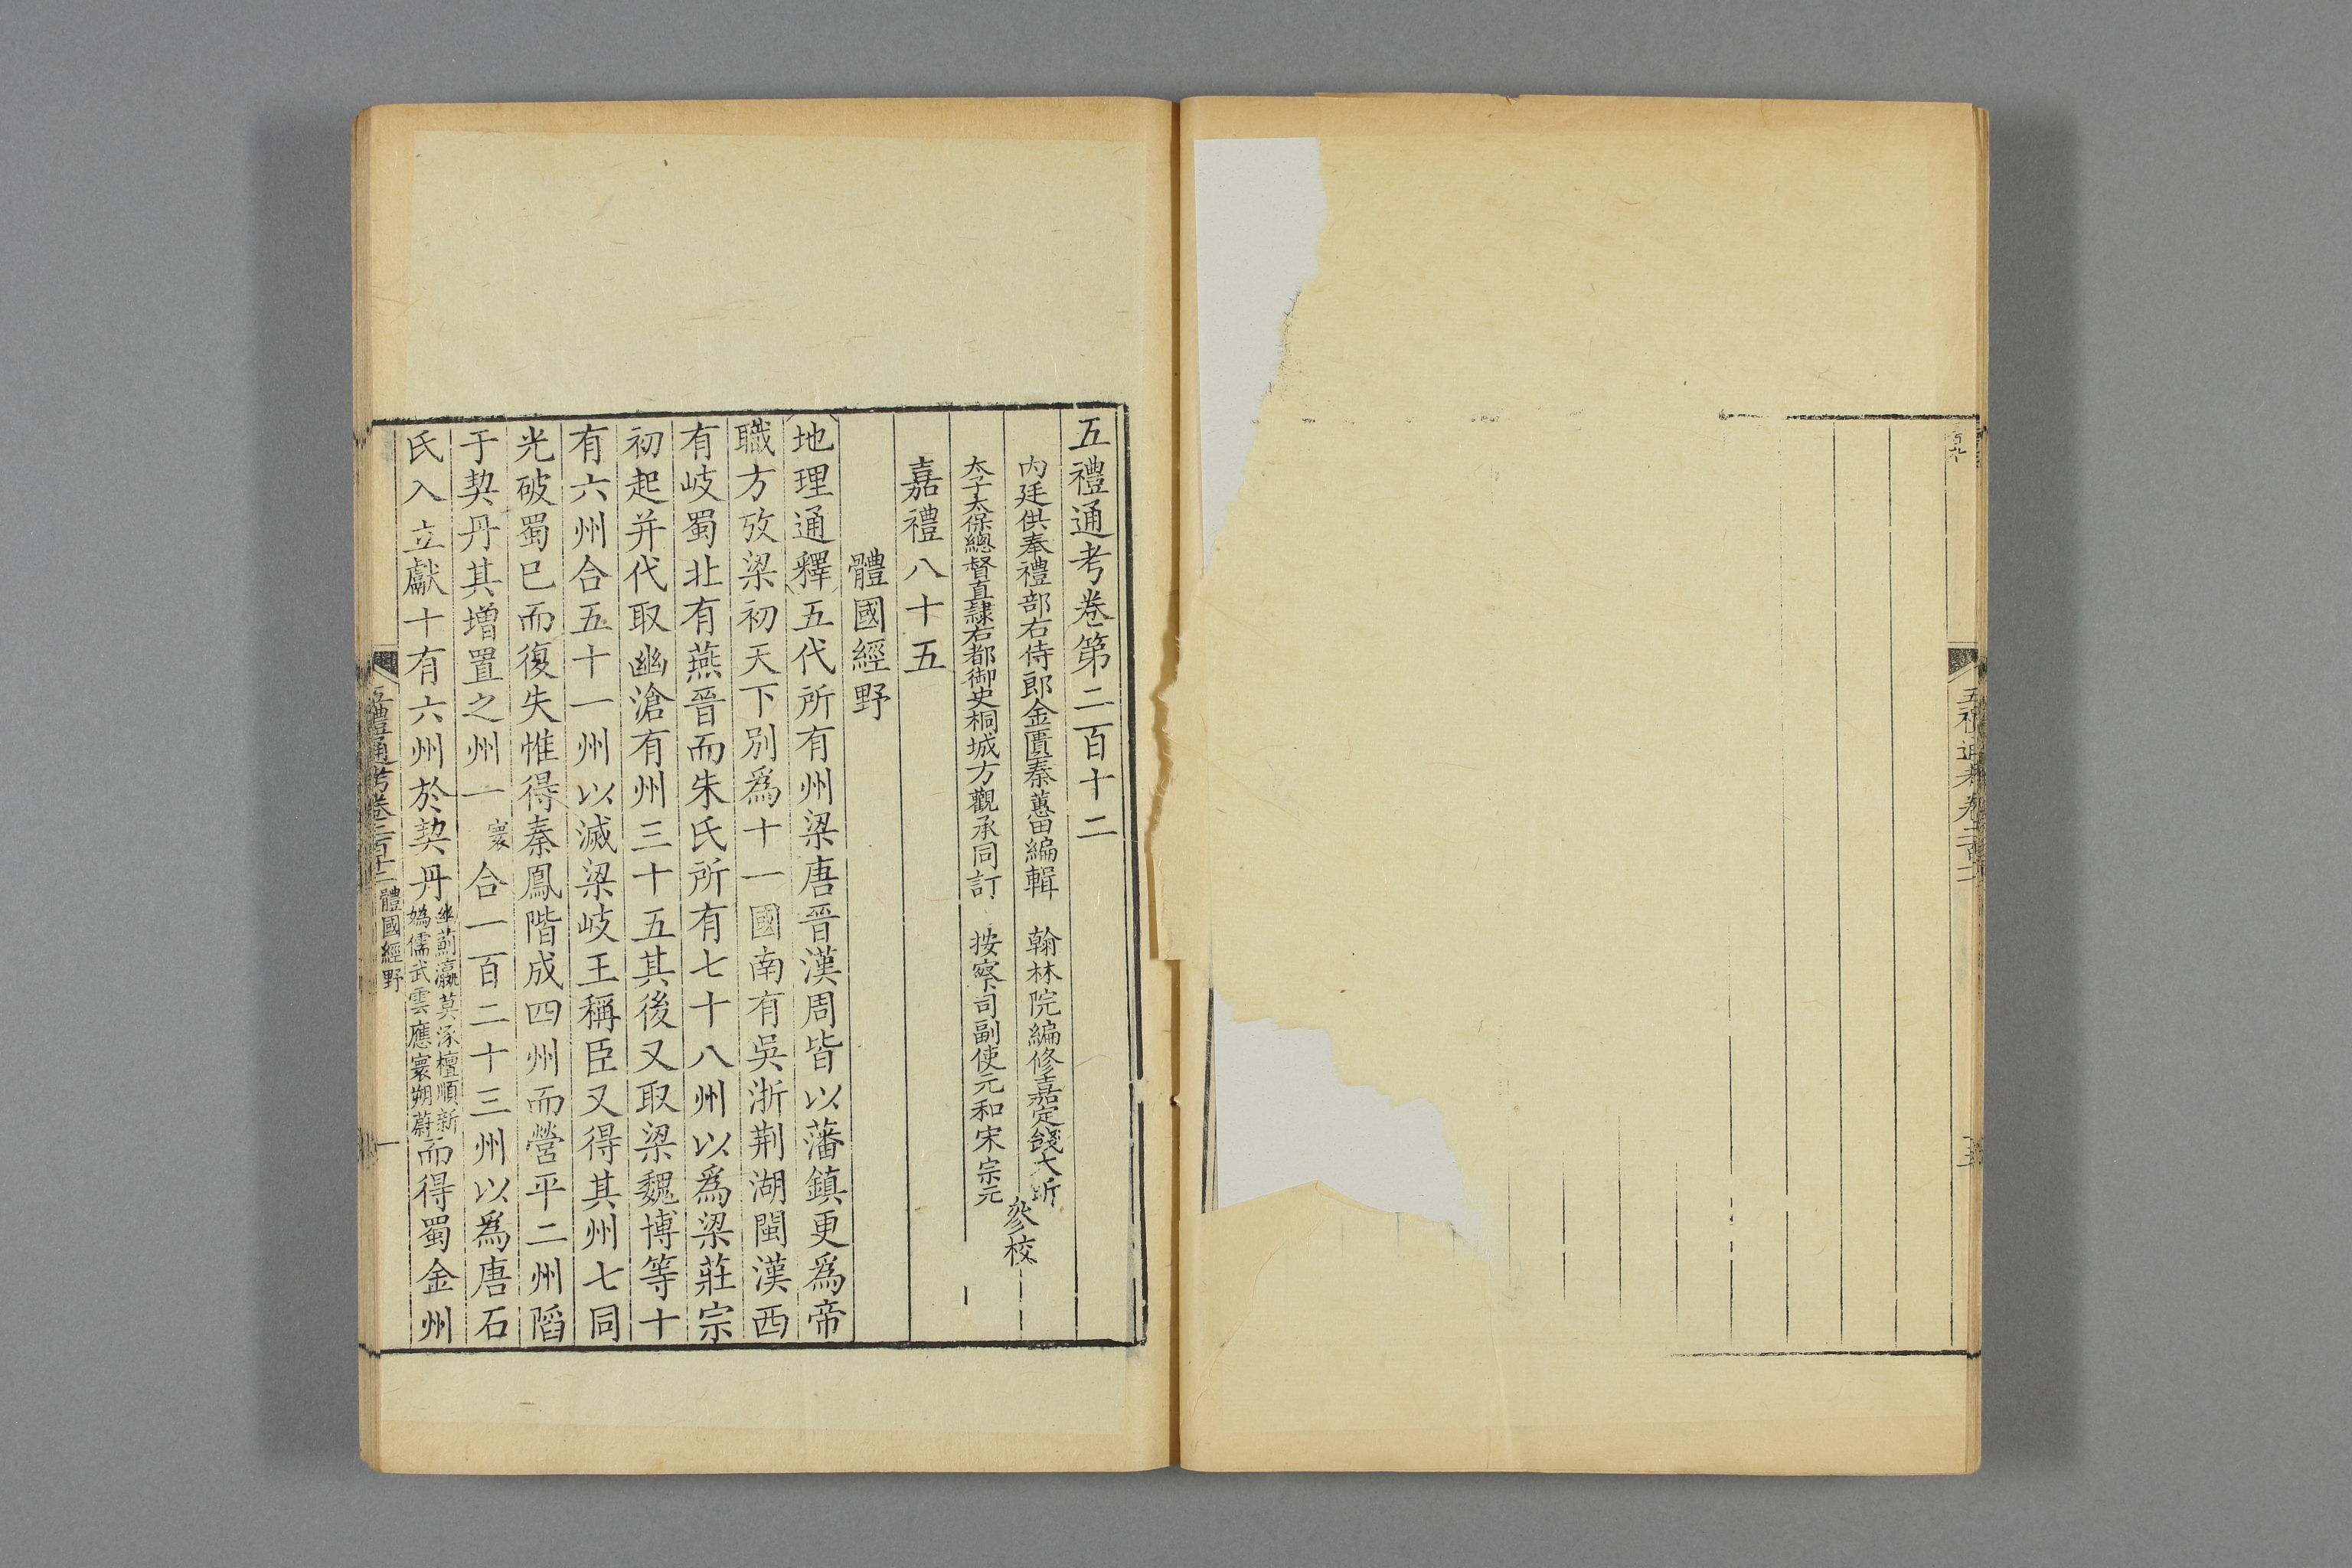 五禮通考卷第二百十二
內廷供奉禮部右侍郎金匱秦蕙田編輯　翰林院編修嘉定錢大昕
太子太保總督直隸右都御史桐城方觀承同訂　按察司副使元和宋宗元
參校
嘉禮八十五
體國經野
地理通釋五代所有州梁唐晉漢周皆以藩鎮更爲帝
職方攷梁初天下別爲十一國南有吳浙荆湖閩漢西
有岐蜀北有燕晉而朱氏所有七十八州以爲梁莊宗
初起并代取幽滄有州三十五其後又取梁魏博等十
有六州合五十一州以滅梁岐王稱臣又得其州七同
光破蜀已而復失惟得秦鳳階成四州而營平二州陷
于契丹其增置之州一寰合一百二十三州以爲唐石
氏入立獻十有六州於契丹幽薊瀛莫涿檀順新媯儒武雲應寰朔蔚而得蜀金州
五禮通考卷二百十二　體國經野　一